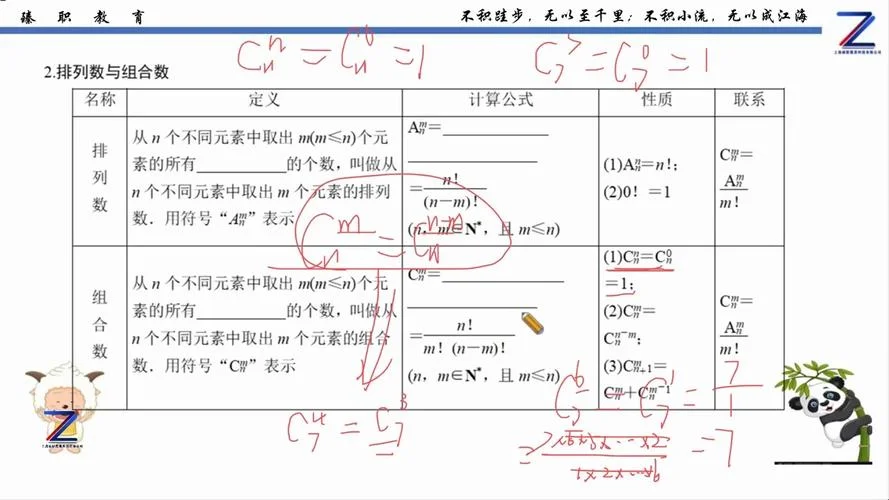 臻 职 教 育
不积跬步，无以至千里；不积小流，无以成江海
Cₙⁿ=Cₙ⁰=1
C₇⁷=C₇⁰=1
2.排列数与组合数
名称 定义 计算公式 性质 联系
排列数
从 n 个不同元素中取出 m(m≤n)个元
素的所有____________的个数，叫做从
n 个不同元素中取出 m 个元素的排列
数．用符号“Aₙᵐ”表示
Aₙᵐ=______________
______________
=n!/(n－m)!
(n，m∈N*，且 m≤n)
(1)Aₙⁿ=n!；
(2)0！=1
Cₙᵐ=
Aₙᵐ/m!
Cₙᵐ=Cₙⁿ⁻ᵐ
组合数
从 n 个不同元素中取出 m(m≤n)个元
素的所有____________的个数，叫做从
n 个不同元素中取出 m 个元素的组合
数．用符号“Cₙᵐ”表示
Cₙᵐ=______________
______________
=n!/m!(n－m)!
(n，m∈N*，且 m≤n)
(1)Cₙⁿ=Cₙ⁰
=1；
(2)Cₙᵐ=
Cₙⁿ⁻ᵐ；
(3)Cₙ₊₁ᵐ=
Cₙᵐ+Cₙᵐ⁻¹
Cₙᵐ=
Aₙᵐ/m!
C₇⁴=C₇³
C₇⁶=C₇¹=7/1
=7